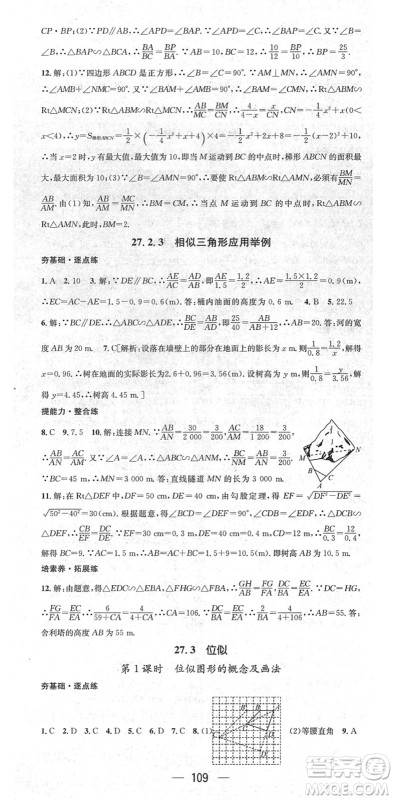 CP·BP;(2)∵PD∥AB,∴∠APD=∠BAP.∵∠APD=∠C,∴∠BAP=
∠C.∵∠B=∠B,∴△BAP∽△BCA.∴BA/BC=BP/BA.∴10/12=BP/10.∴BP=25/3.
12.解:(1)∵四边形ABCD是正方形,∴∠B=∠C=90°.∵AM⊥MN,∴∠AMN=90°.
∴∠AMB+∠NMC=90°.∵∠AMB+∠MAB=90°,∴∠NMC=∠MAB.∴Rt△ABM∽
Rt△MCN;(2)∵Rt△ABM∽Rt△MCN,∴AB/MC=BM/CN.∴4/(4-x)=x/CN.∴CN=(1/4)x(4-x)(0<x
<4),∴y=S梯形ABCN=1/2×(-1/4x²+x+4)×4=-1/2x²+2x+8=-1/2(x-2)²+10.
∴当x=2时,y有最大值,最大值为10,∴当M运动到BC的中点时,梯形ABCN的面积最
大,最大值为10;(3)∵∠B=∠AMN=90°,∴要使Rt△ABM∽Rt△AMN,必须有BM/MN=
AB/AM.∵AB/MC=AM/MN,∴BM=MC.∴当M运动到BC的中点时,Rt△ABM∽Rt△AMN.
27.2.3 相似三角形应用举例
夯基础·逐点练
1.A 2.10 3.解:∵DE∥BC,∴AE/AC=AD/AB.∴AE=(1.5×1.2)/2=0.9(m),
∴EC=AC-AE=1.5-0.9=0.6(m).答:桶内油面的高度为0.6 m. 4.B 5.22.5
6.解:∵DE∥BC,∴△ABC∽△ADE.∴BC/DE=AB/AD,即20/32=AB/(AB+12),∴AB=
20 m.答:河的宽度AB为20 m. 7.C[解析:设落在墙壁上的影长为x m,则1/0.8=x/1.2,解
得x=0.96,∴树在地面上的实际影长是0.96+2.6=3.56(m),再设树高为y m,∴1/0.8=y/3.56,解
得y=4.45,∴树高为4.45 m.]
提能力·整合练
8.C 9.7.5 10.解:连接MN,∵AB/AN=30/2 000=3/200,AC/AM=18/1 200=3/200,∴AB/AN=
AC/AM.又∵∠A=∠A,∴△ABC∽△ANM.∴BC/MN=AC/AM=3/200.∵BC=
45 m,∴MN=3 000 m.答:直线隧道MN的长为3 000 m.
11.解:在Rt△DEF中,DF=50 cm,DE=40 cm,由勾股定理,得EF=√(DF²-DE²)=
√(50²-40²)=30(cm).由题意,得∠BCD=∠DEF=90°,∠CDB=∠EDF,∴△DCB∽
△DEF.∴CB/EF=DC/DE.∵EF=30 cm=0.3 m,DE=40 cm=0.4 m,CD=12 m,∴BC/0.3=12/0.4,
解得BC=9 m.∵AC=1.5 m,∴AB=AC+BC=1.5+9=10.5(m),即树高AB为10.5 m.
培素养·拓展练
12.解:由题意,得△EDC∽△EBA,△FHG∽△FBA,∴GH/AB=FG/FA,DC/AB=EC/EA.∵DC=HG,
∴FG/FA=EC/EA,∴6/(59+CA)=4/(4+CA),∴CA=106 m.∵DC/AB=EC/EA,∴2/AB=4/(4+106),∴AB=55 m.答:
舍利塔的高度AB为55 m.
27.3 位似
第1课时 位似图形的概念及画法
夯基础·逐点练
1.C 2.D 3.C 4.C 5.50 6.C 7.C 8.(1) (2)等腰直角 9.A
109